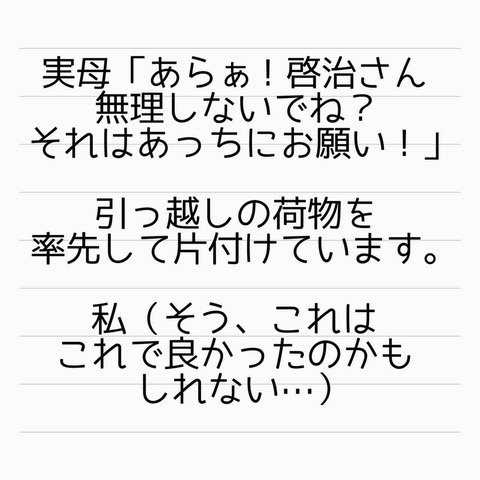 実母「あらぁ！啓治さん
無理しないでね？
それはあっちにお願い！」
引っ越しの荷物を
率先して片付けています。
私（そう、これは
これで良かったのかも
しれない…）